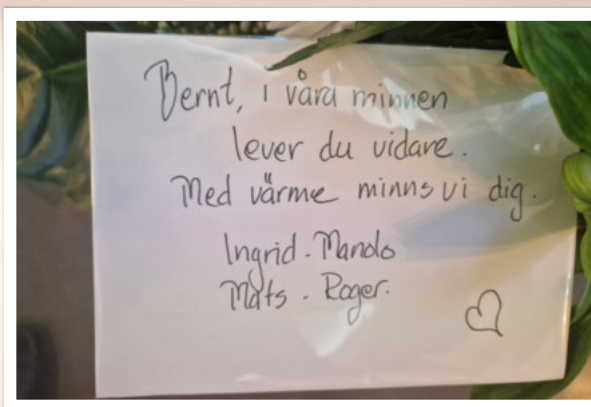 Bernt, i våra minnen
lever du vidare.
Med värme minns vi dig.
Ingrid - Manolo
Mats - Roger.